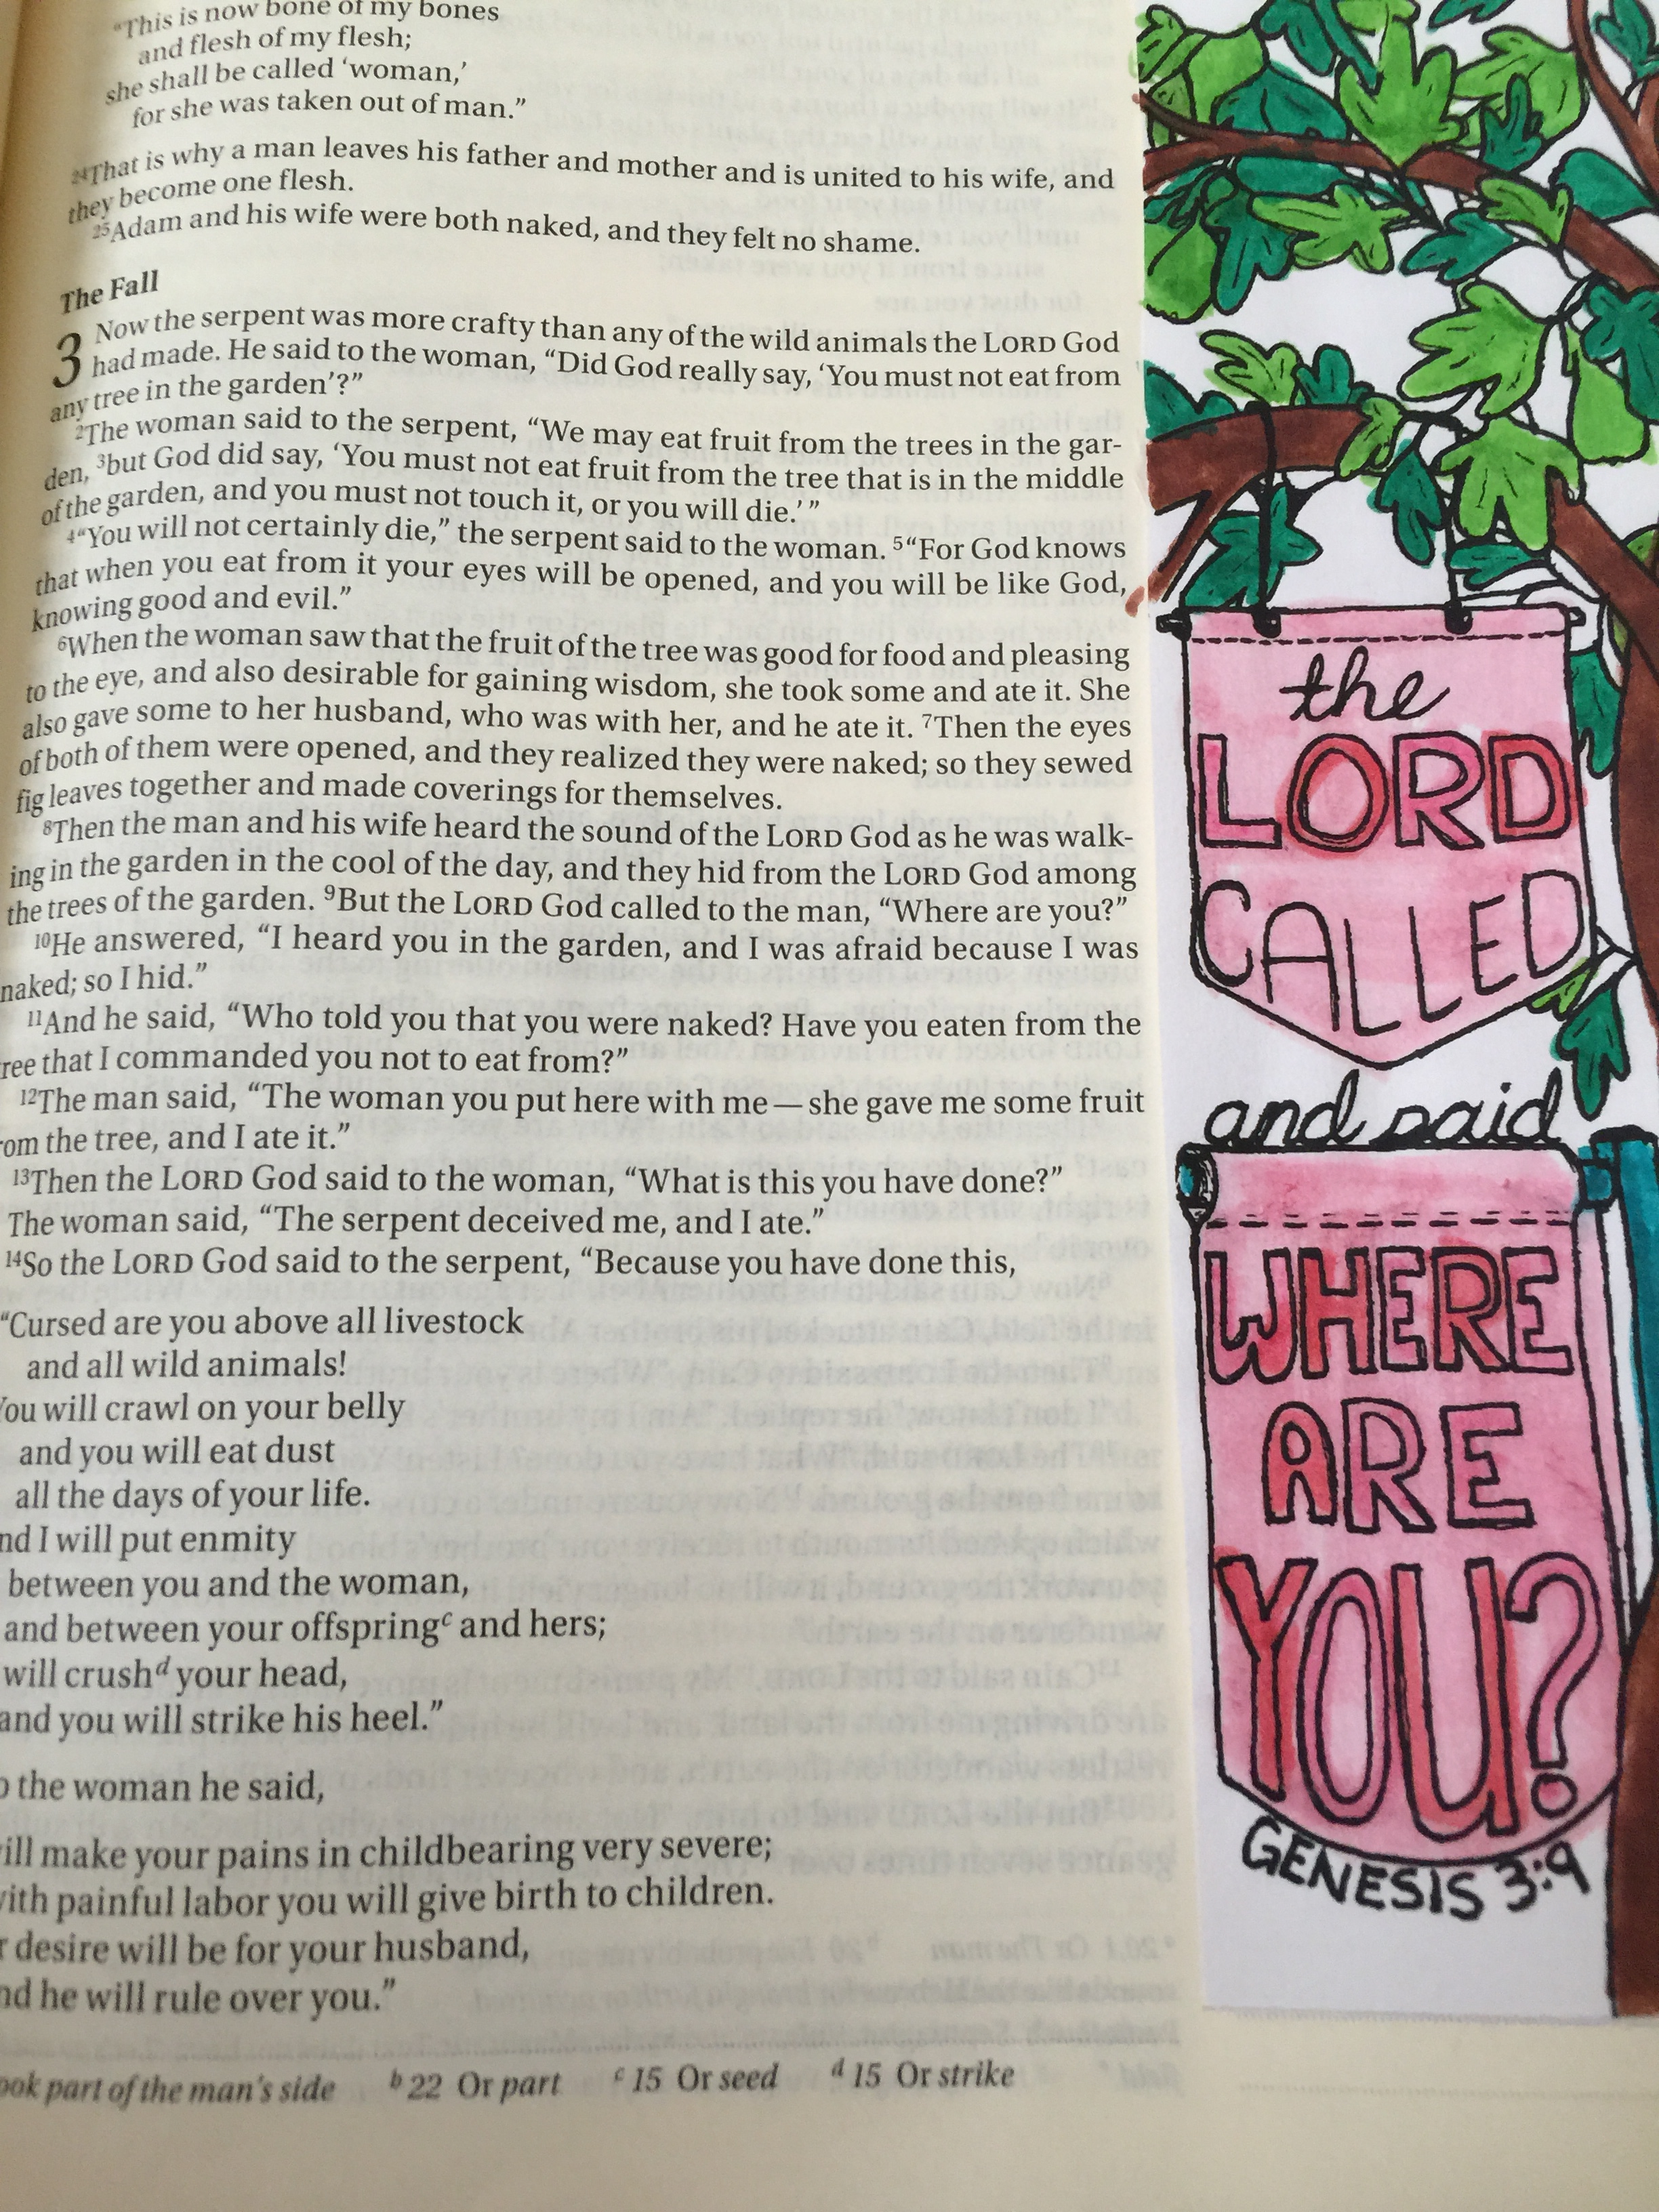 “This is now bone of my bones
and flesh of my flesh;
she shall be called ‘woman,’
for she was taken out of man.”
24That is why a man leaves his father and mother and is united to his wife, and
they become one flesh.
25Adam and his wife were both naked, and they felt no shame.
The Fall
3 Now the serpent was more crafty than any of the wild animals the LORD God
had made. He said to the woman, “Did God really say, ‘You must not eat from
any tree in the garden’?”
2The woman said to the serpent, “We may eat fruit from the trees in the gar-
den, 3but God did say, ‘You must not eat fruit from the tree that is in the middle
of the garden, and you must not touch it, or you will die.’ ”
4“You will not certainly die,” the serpent said to the woman. 5“For God knows
that when you eat from it your eyes will be opened, and you will be like God,
knowing good and evil.”
6When the woman saw that the fruit of the tree was good for food and pleasing
to the eye, and also desirable for gaining wisdom, she took some and ate it. She
also gave some to her husband, who was with her, and he ate it. 7Then the eyes
of both of them were opened, and they realized they were naked; so they sewed
fig leaves together and made coverings for themselves.
8Then the man and his wife heard the sound of the LORD God as he was walk-
ing in the garden in the cool of the day, and they hid from the LORD God among
the trees of the garden. 9But the LORD God called to the man, “Where are you?”
10He answered, “I heard you in the garden, and I was afraid because I was
naked; so I hid.”
11And he said, “Who told you that you were naked? Have you eaten from the
ree that I commanded you not to eat from?”
12The man said, “The woman you put here with me — she gave me some fruit
om the tree, and I ate it.”
13Then the LORD God said to the woman, “What is this you have done?”
The woman said, “The serpent deceived me, and I ate.”
14So the LORD God said to the serpent, “Because you have done this,
“Cursed are you above all livestock
and all wild animals!
You will crawl on your belly
and you will eat dust
all the days of your life.
nd I will put enmity
between you and the woman,
and between your offspringc and hers;
will crushd your head,
and you will strike his heel.”
o the woman he said,
ill make your pains in childbearing very severe;
ith painful labor you will give birth to children.
r desire will be for your husband,
nd he will rule over you.”
ook part of the man’s side b 22 Or part c 15 Or seed d 15 Or strike
the
LORD
CALLED
and said
WHERE
ARE
YOU?
GENESIS 3:9